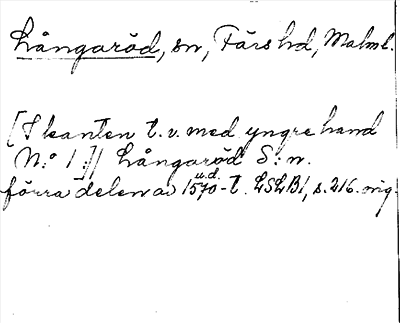 Långaröd, sn, Färs hd, Malm l.
[I kanten t. v. med yngre hand
N:o 1:]/ Långaröd S:n.
u.d.
förra delen av 1570-t. LSLB1, s. 216. orig.